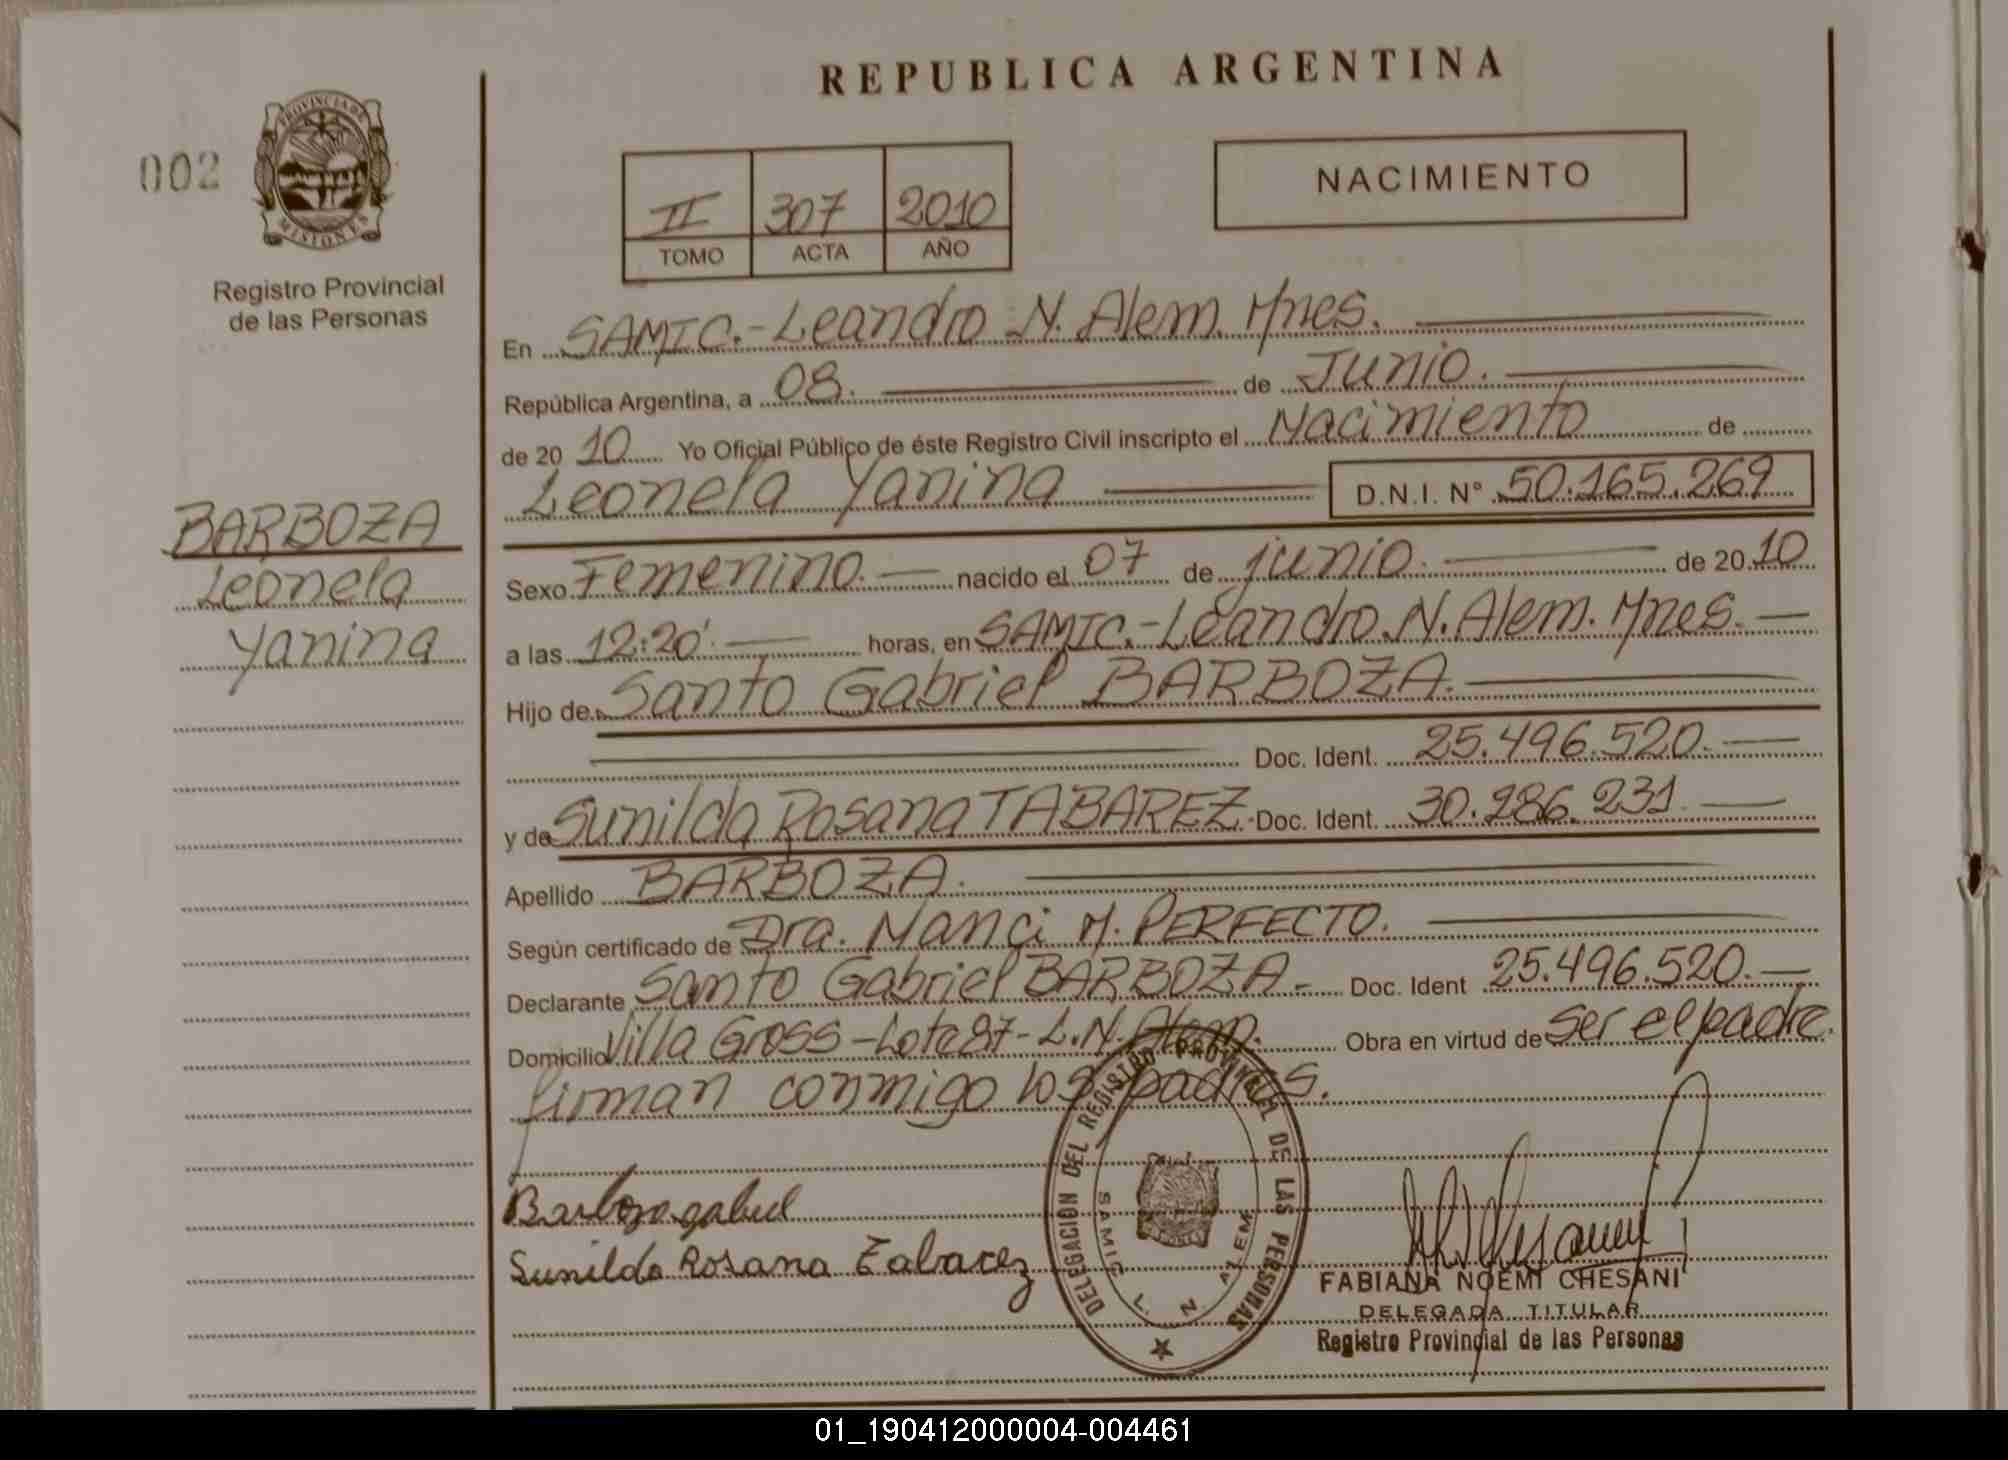 REPUBLICA ARGENTINA
002
PROVINCIA DE
MISIONES
Registro Provincial
de las Personas
II 307 2010
TOMO ACTA AÑO
NACIMIENTO
En SAMIC.-Leandro N. Alem. Mnes.
República Argentina, a 08. de Junio.
de 20 10 Yo Oficial Público de éste Registro Civil inscripto el Nacimiento de
Leonela Yanina D.N.I. N° 50.165.269
BARBOZA
Leonela
Yanina
Sexo Femenino. nacido el 07 de junio. de 20 10
a las 12:20'. horas, en SAMIC.-Leandro.N.Alem. Mnes.
Hijo de Santo Gabriel BARBOZA.
Doc. Ident. 25.496.520.
y de Sunilda Rosana TABAREZ. Doc. Ident. 30.286.231.
Apellido BARBOZA.
Según certificado de Dra. Nanci M. PERFECTO.
Declarante Santo Gabriel BARBOZA. Doc. Ident 25.496.520.
Domicilio Villa Gross-Lote 87-L.N.Alem. Obra en virtud de Ser el padre.
firman conmigo los padres.
Barboza gabriel
Sunilda Rosana Tabarez
DELEGACION DEL REGISTRO PROVINCIAL DE LAS PERSONAS
SAMIC L. N. ALEM
FABIANA NOEMI CHESANI
DELEGADA TITULAR
Registro Provincial de las Personas
01_190412000004-004461